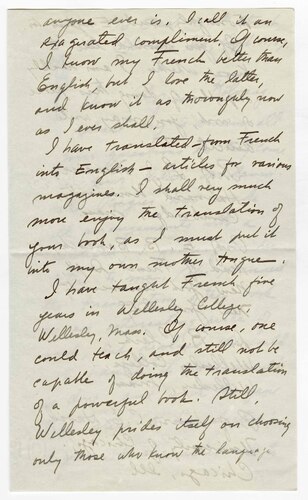 anyone ever is. I call it an
exagerated compliment. Of course,
I know my French better than
English, but I love the latter,
and know it as thoroughly now
as I ever shall.
I have translated — from French
into English — articles for various
magazines. I shall very much
more enjoy the translation of
your book, as I must put it
into my own mother tongue.
I have taught French five
years in Wellesley College,
Wellesley, Mass. Of course, one
could teach, and still not be
capable of doing the translation
of a powerful book. Still,
Wellesley prides itself on choosing
only those who know the language
Chicago, Ill